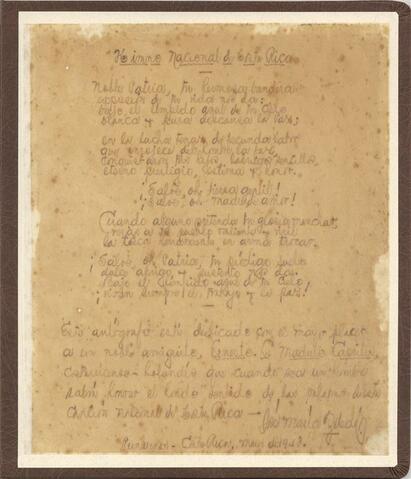 Himno Nacional de Costa Rica
Noble Patria, tu hermosa bandera
expresión de tu vida nos da:
bajo el límpido azul de tu cielo
blanca y pura descansa la paz;
en la lucha tenaz de fecunda labor
que enrojece del hombre la faz,
conquistaron tus hijos, labriegos sencillos,
eterno prestigio, estima y honor.
¡Salve, oh tierra gentil!
¡Salve, oh madre de amor!
Cuando alguno pretenda tu gloria manchar,
verás a tu pueblo valiente y viril
la tosca herramienta en arma trocar.
¡Salve, oh Patria, tu pródigo suelo
dulce abrigo y sustento nos da;
bajo el límpido azul de tu cielo
vivan siempre el trabajo y la paz!
Este autógrafo está dedicado con el mayor placer
a un noble amiguito, Ernesto
que cuando sea un hombre
sabrá honrar el lindo sentido de las palabras de esta
canción nacional de Costa Rica —
José María Zeledón
Puntarenas - Costa Rica, mayo de